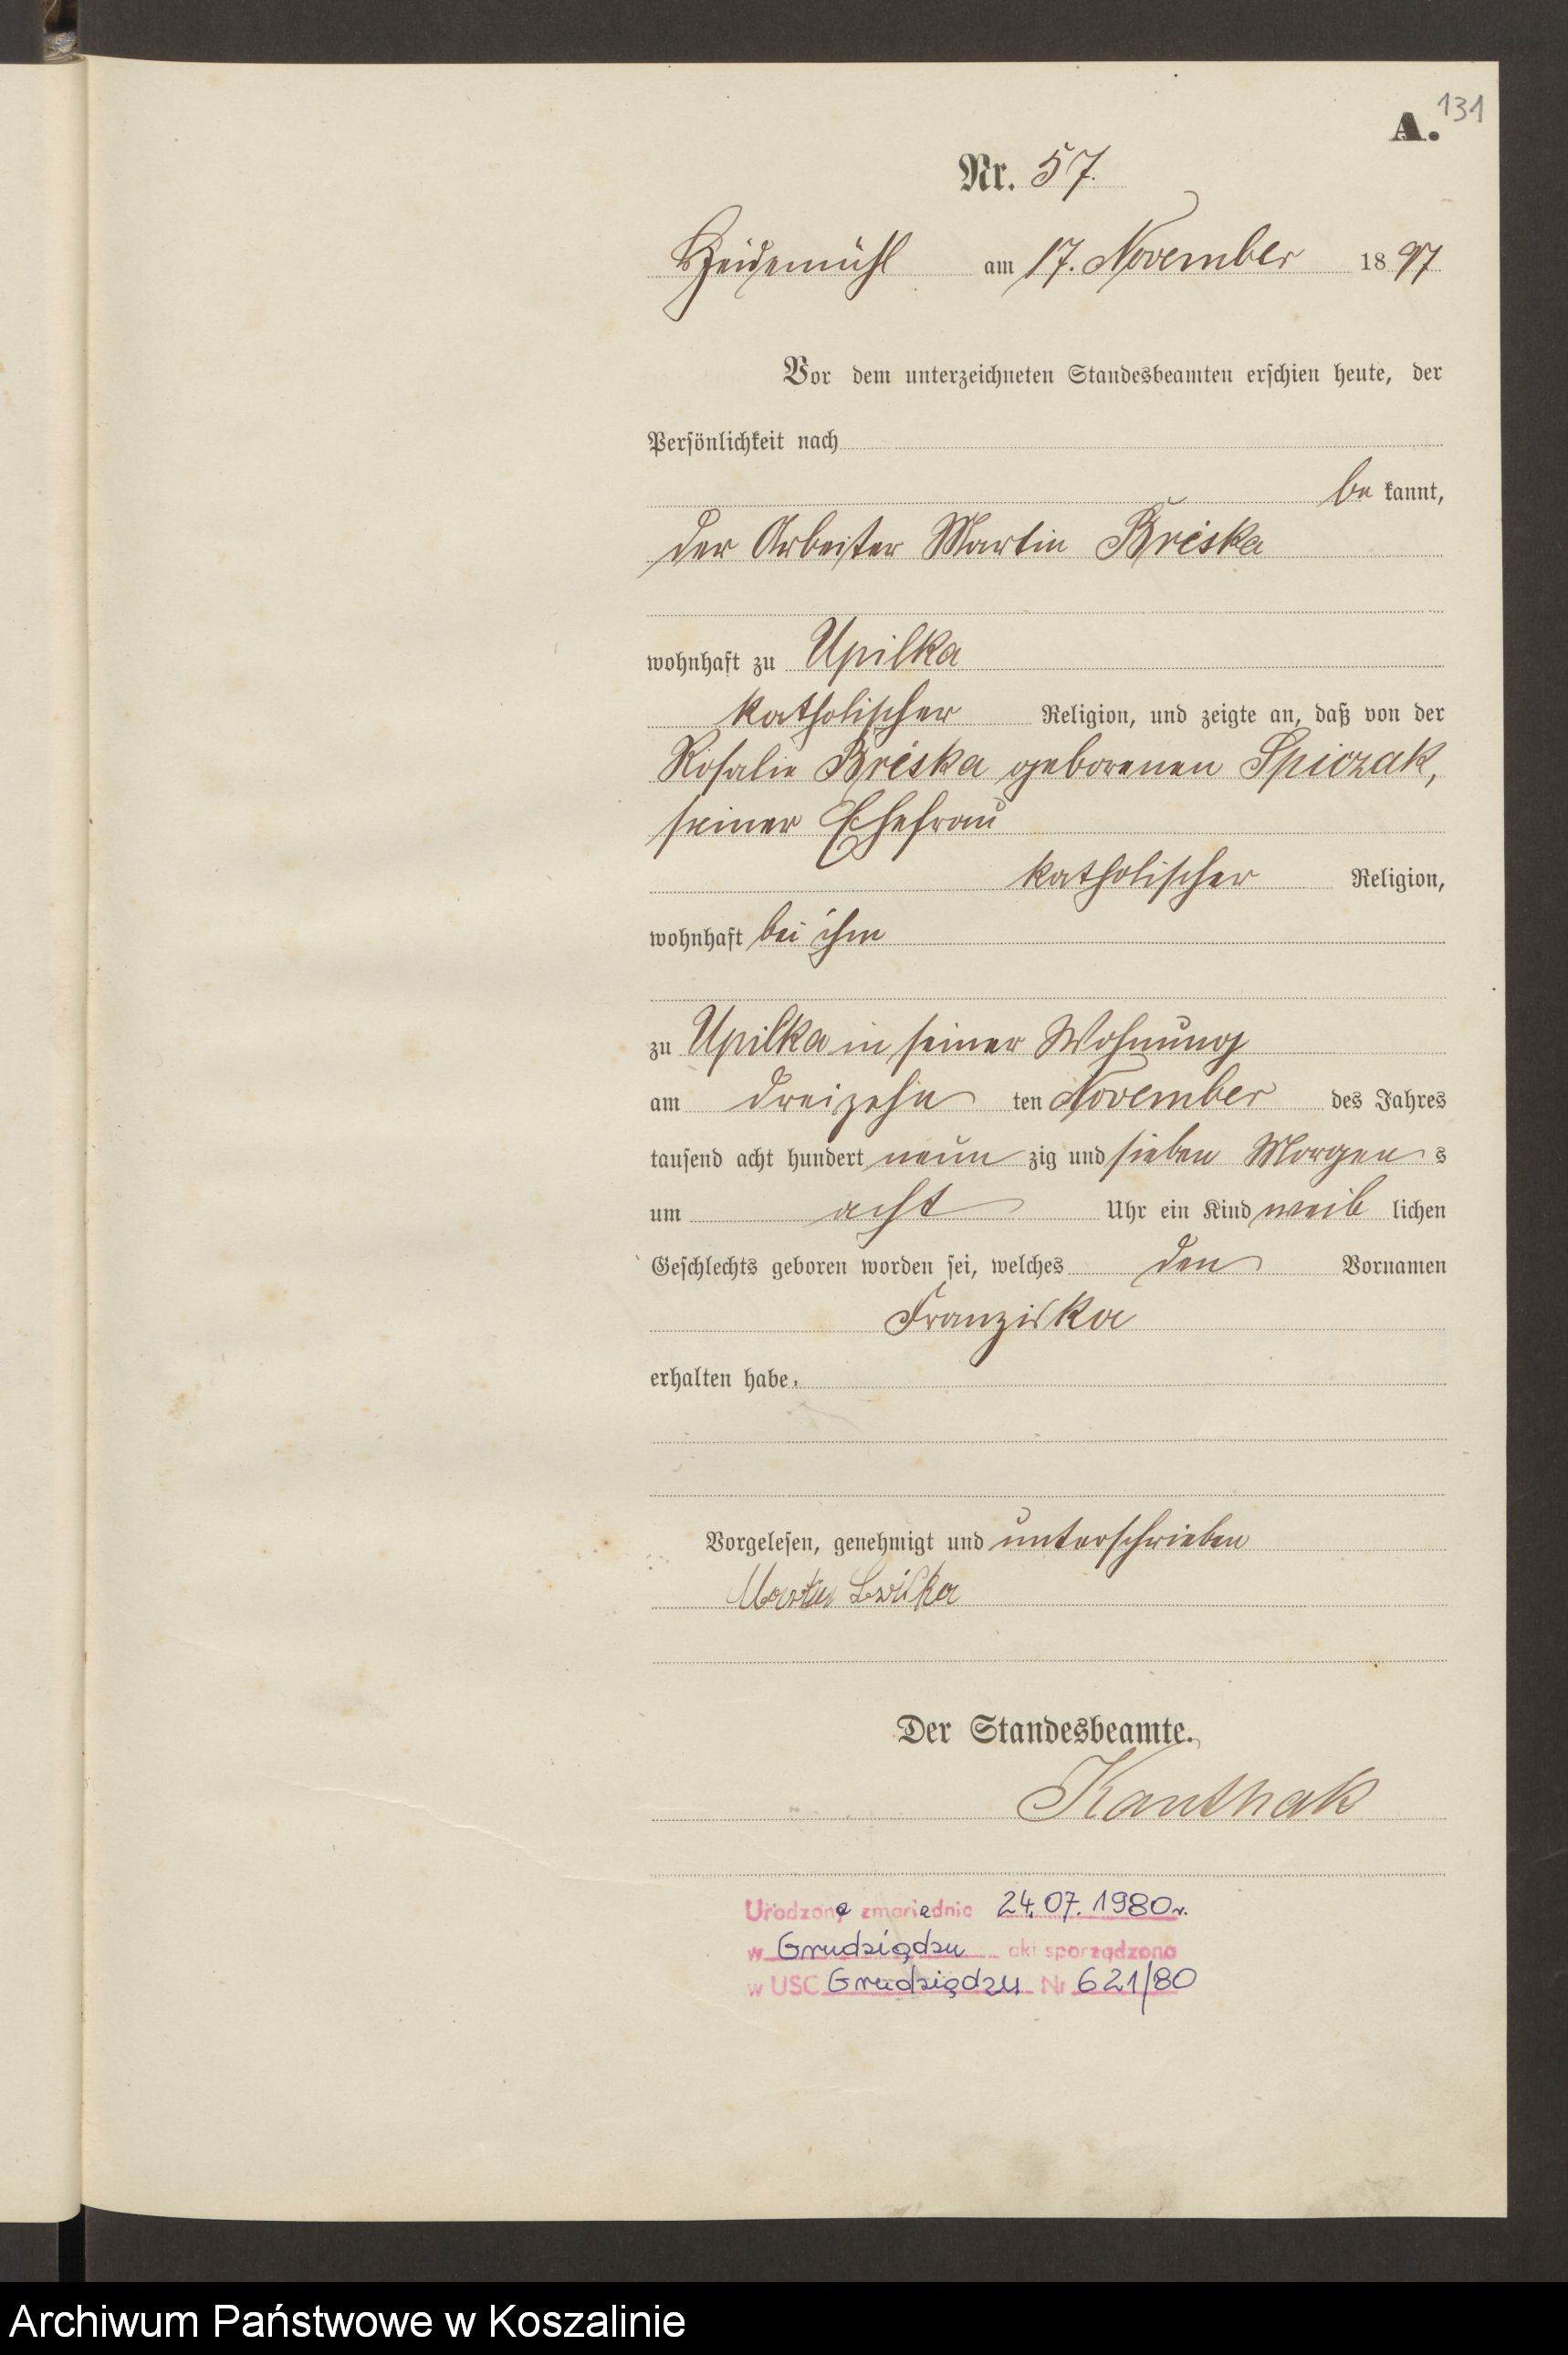 131
A.
Nr. 57.
Heidemühl am 17. November 1897
Vor dem unterzeichneten Standesbeamten erschien heute, der
Persönlichkeit nach
be kannt,
der Arbeiter Martin Briska
wohnhaft zu Upilka
katholischer Religion, und zeigte an, daß von der
Rosalie Briska geborenen Spiczak,
seiner Ehefrau
katholischer Religion,
wohnhaft bei ihm
zu Upilka in seiner Wohnung
am dreizehn ten November des Jahres
tausend acht hundert neun zig und sieben Morgen s
um acht Uhr ein Kind weib lichen
Geschlechts geboren worden sei, welches den Vornamen
Franziska
erhalten habe.
Vorgelesen, genehmigt und unterschrieben
Martin
Der Standesbeamte.
Kanthak
Urodzona zmarła dnia 24.07.1980r.
w Grudziądzu akt sporządzono
w USC Grudziądzu Nr 621/80
Archiwum Państwowe w Koszalinie